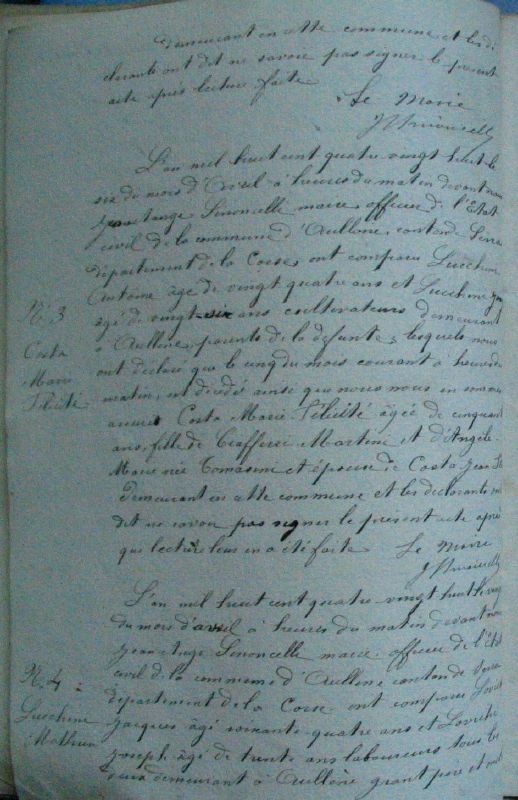 demeurant en cette commune et les dé
clarants ont dit ne savoir pas signer le présent
acte après lecture faite
Le Maire
L'an mil huit cent quatre vingt huit le
six du mois d'Avril à heures du matin devant nous
Jean Ange Simoncelle maire officier de l'Etat
civil de la commune d'Aullène, canton de Serra
département de la Corse, ont comparu Lucchini
Antoine âgé de vingt quatre ans et Lucchini
âgé de vingt-six ans cultivateurs demeurant
N. 3
Costa
Marie
Félicité
à Aullène, parents de la défunte, lesquels nous
ont déclaré que le cinq du mois courant à heures du
matin, est décédé ainsi que nous nous en sommes
assuré Costa Marie Félicité âgée de cinquante
ans, fille de Martini et d'Angèle
Marie née Tomasini et épouse de Costa Jean
demeurant en cette commune et les déclarants ont
dit ne savoir pas signer le présent acte après
que lecture leur en a été faite Le Maire
L'an mil huit cent quatre-vingt huit le
du mois d'avril à heures du matin devant nous
Jean Ange Simoncelle maire officier de l'Etat
civil de la commune d'Aullène canton de Serra
N. 4
Lucchini
département de la Corse ont comparu
Jacques âgé soixante-quatre ans et
Joseph âgé de trente ans laboureurs tous les
deux demeurant à Aullène grand père et